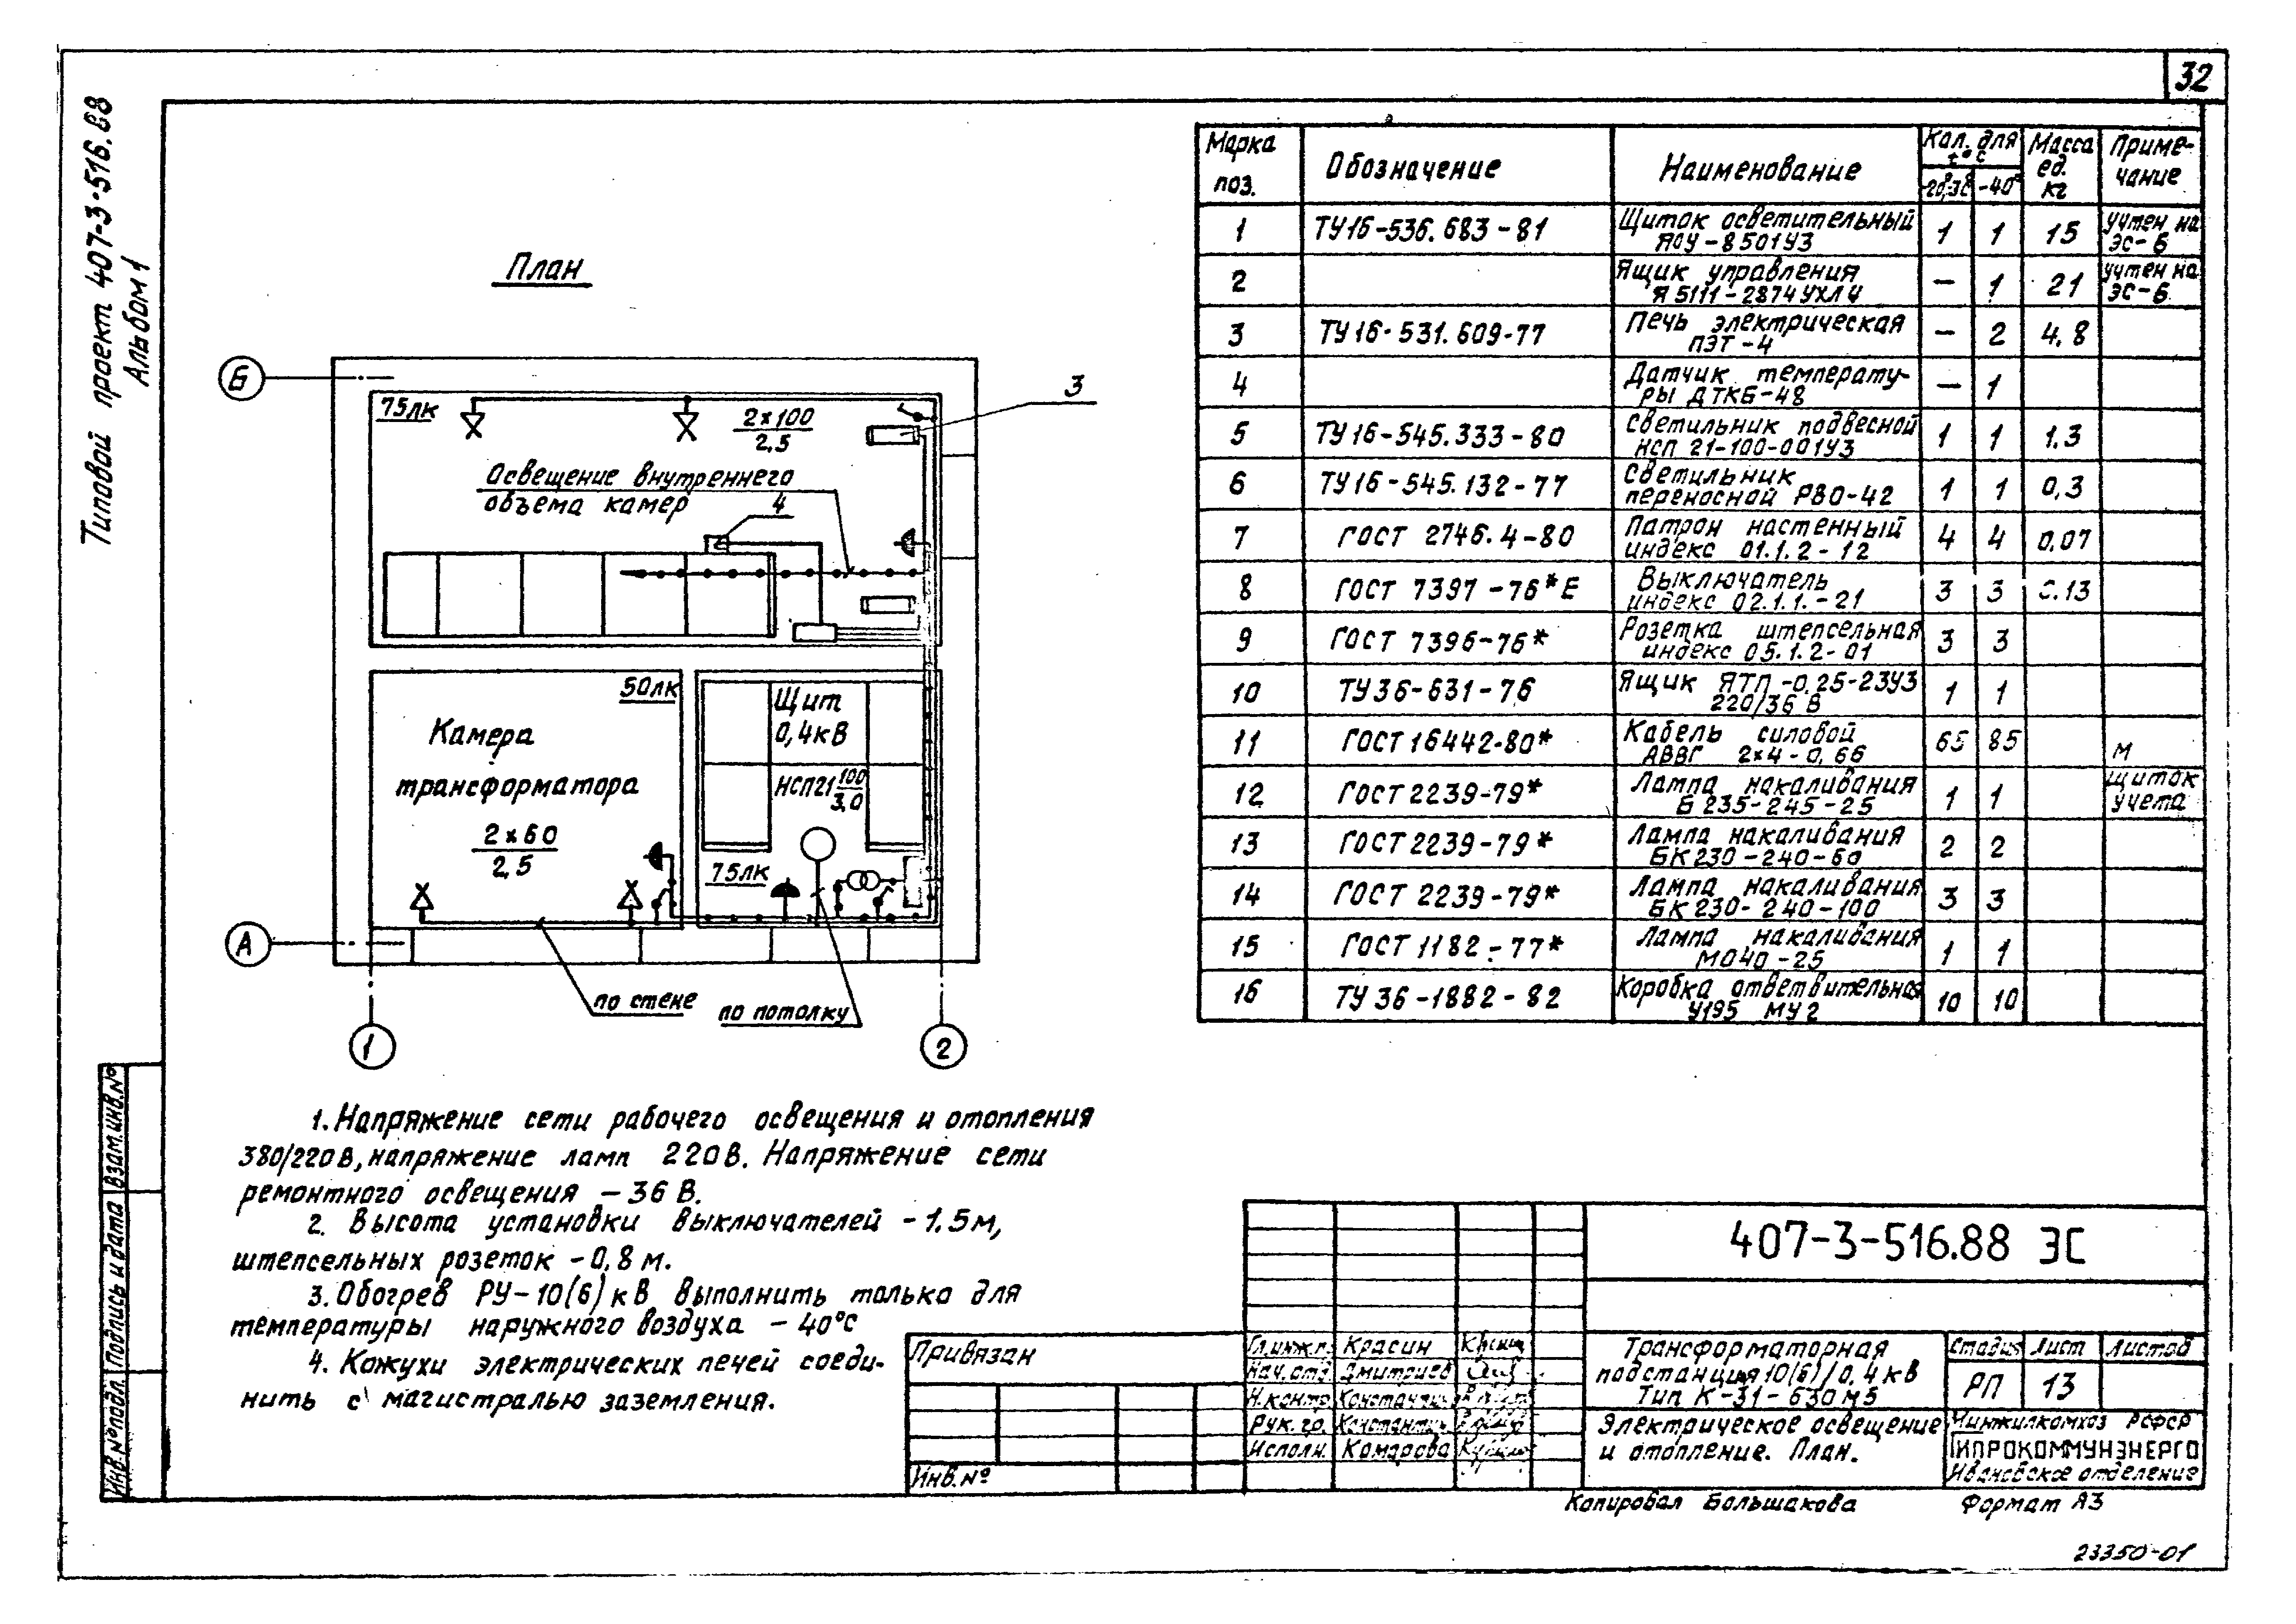 32
Типовой проект 407-3-516.88
Альбом 1
План
Б
75лк
2×100
2,5
3
Освещение внутреннего
объема камер
4
50лк
Камера
трансформатора
2×60
2,5
Щит
0,4кВ
НСП21 100
3,0
75лк
А
по стене
по потолку
1
2
Марка поз.
Обозначение
Наименование
Кол. для t°c
-20°,-30°
-40°
Масса ед. кг
Примечание
1 ТУ16-536.683-81 Щиток осветительный ЯОУ-8501У3 1 1 15 учтен на ЭС-6
2 Ящик управления Я5111-2874УХЛ4 — 1 21 учтен на ЭС-6
3 ТУ16-531.609-77 Печь электрическая ПЭТ-4 — 2 4,8
4 Датчик температуры ДТКБ-48 — 1
5 ТУ16-545.333-80 Светильник подвесной НСП 21-100-001У3 1 1 1,3
6 ТУ16-545.132-77 Светильник переносной РВО-42 1 1 0,3
7 ГОСТ 2746.4-80 Патрон настенный индекс 01.1.2-12 4 4 0,07
8 ГОСТ 7397-76*Е Выключатель индекс 02.1.1.-21 3 3 0.13
9 ГОСТ 7396-76* Розетка штепсельная индекс 05.1.2-01 3 3
10 ТУ36-631-76 Ящик ЯТП-0,25-23У3 220/36 В 1 1
11 ГОСТ 16442-80* Кабель силовой АВВГ 2×4-0,66 65 85 м
12 ГОСТ 2239-79* Лампа накаливания Б 235-245-25 1 1 щиток учета
13 ГОСТ 2239-79* Лампа накаливания БК 230-240-60 2 2
14 ГОСТ 2239-79* Лампа накаливания БК 230-240-100 3 3
15 ГОСТ 1182-77* Лампа накаливания МО40-25 1 1
16 ТУ 36-1882-82 Коробка ответвительная У195 МУ2 10 10
1. Напряжение сети рабочего освещения и отопления
380/220В, напряжение ламп 220В. Напряжение сети
ремонтного освещения – 36 В.
2. Высота установки выключателей – 1.5м,
штепсельных розеток – 0,8 м.
3. Обогрев РУ-10(6)кВ выполнить только для
температуры наружного воздуха – 40°С
4. Кожухи электрических печей соеди-
нить с магистралью заземления.
Взам.инв.№
Подпись и дата
Инв.№подл.
Привязан
Инв.№
Гл.инж.п. Красин
Нач.отд. Дмитриев
Н.контр. Константинь
Рук.гр. Константинь
Исполн. Комарова
407-3-516.88 ЭС
Трансформаторная
подстанция 10(6)/0,4кВ
Тип К-31-630м5
Стадия Лист Листов
РП 13
Электрическое освещение
и отопление. План.
Минжилкомхоз РСФСР
ГИПРОКОММУНЭНЕРГО
Ивановское отделение
Копировал Большакова
Формат А3
23350-01